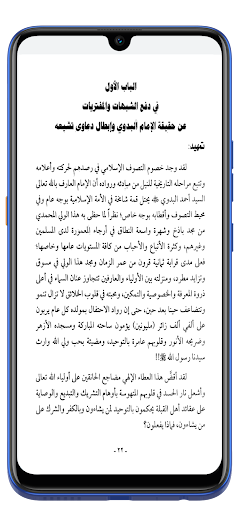 الباب الأول
في دفع الشبهات والمفتريات
عن حقيقة الإمام البدوي وإبطال دعاوى تشيعه
تمهيد:
لقد وجد خصوم التصوف الإسلامي في رصدهم لحركته وأعلامه
وتتبع مراحله التاريخية للنيل من مبادئه ورواده أن الإمام العارف بالله تعالى
السيد أحمد البدوي يحتل قمة شامخة في الأمة الإسلامية بوجه عام وفي
محيط التصوف وأقطابه بوجه خاص؛ نظراً لما حظى به هذا الولي المحمدي
من مجد باذخ وشهرة واسعة النطاق في أرجاء المعمورة لدى المسلمين
وغيرهم، وكثرة الأتباع والأحباب من كافة المستويات عامها وخاصها؛
فعلى مدى قرابة ثمانية قرون من عمر الزمان ومجد هذا الولي في سموق
وتزايد مطرد، ومنزلته بين الأولياء والعارفين تتجاوز عنان السماء في أعلى
ذروة المعرفة والخصوصية والتمكين، ومحبته في قلوب الخلائق لا تزال تنمو
وتتضاعف حينا بعد حين، حتى إن رواد الاحتفال بمولده كل عام يربون
على ألفي ألف زائر (مليونين) يؤمون ساحته المباركة ومسجده الأزهر
وضريحه الأنور وقلوبهم عامرة بالتوحيد، ومضيئة بحب ولي الله وارث
سيدنا رسول الله ﷺ!!
لقد أقضَّ هذا العطاء الإلهي مضاجع الحانقين على أولياء الله تعالى
وأشعل نار الحسد في قلوبهم المتهوسة بأوهام التشريك والتبديع والوصاية
على عقائد أهل القبلة يحكمون بالتوحيد لمن يشاءون وبالكفر والشرك على
من يشاءون، فماذا يفعلون؟
- ٢٢ -